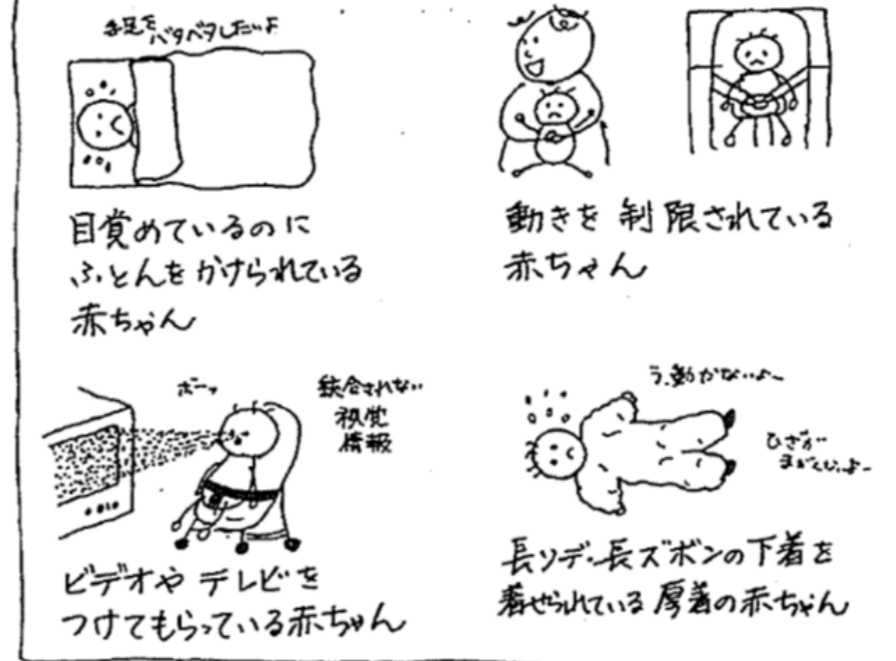 手足を
バタバタしたいよ
目覚めているのに
ふとんをかけられている
赤ちゃん
動きを制限されている
赤ちゃん
ボーッ
統合されない
視覚
情報
ビデオやテレビを
つけてもらっている赤ちゃん
う、動かないよ〜
ひざが
まがんないよ〜
長ソデ・長ズボンの下着を
着せられている厚着の赤ちゃん